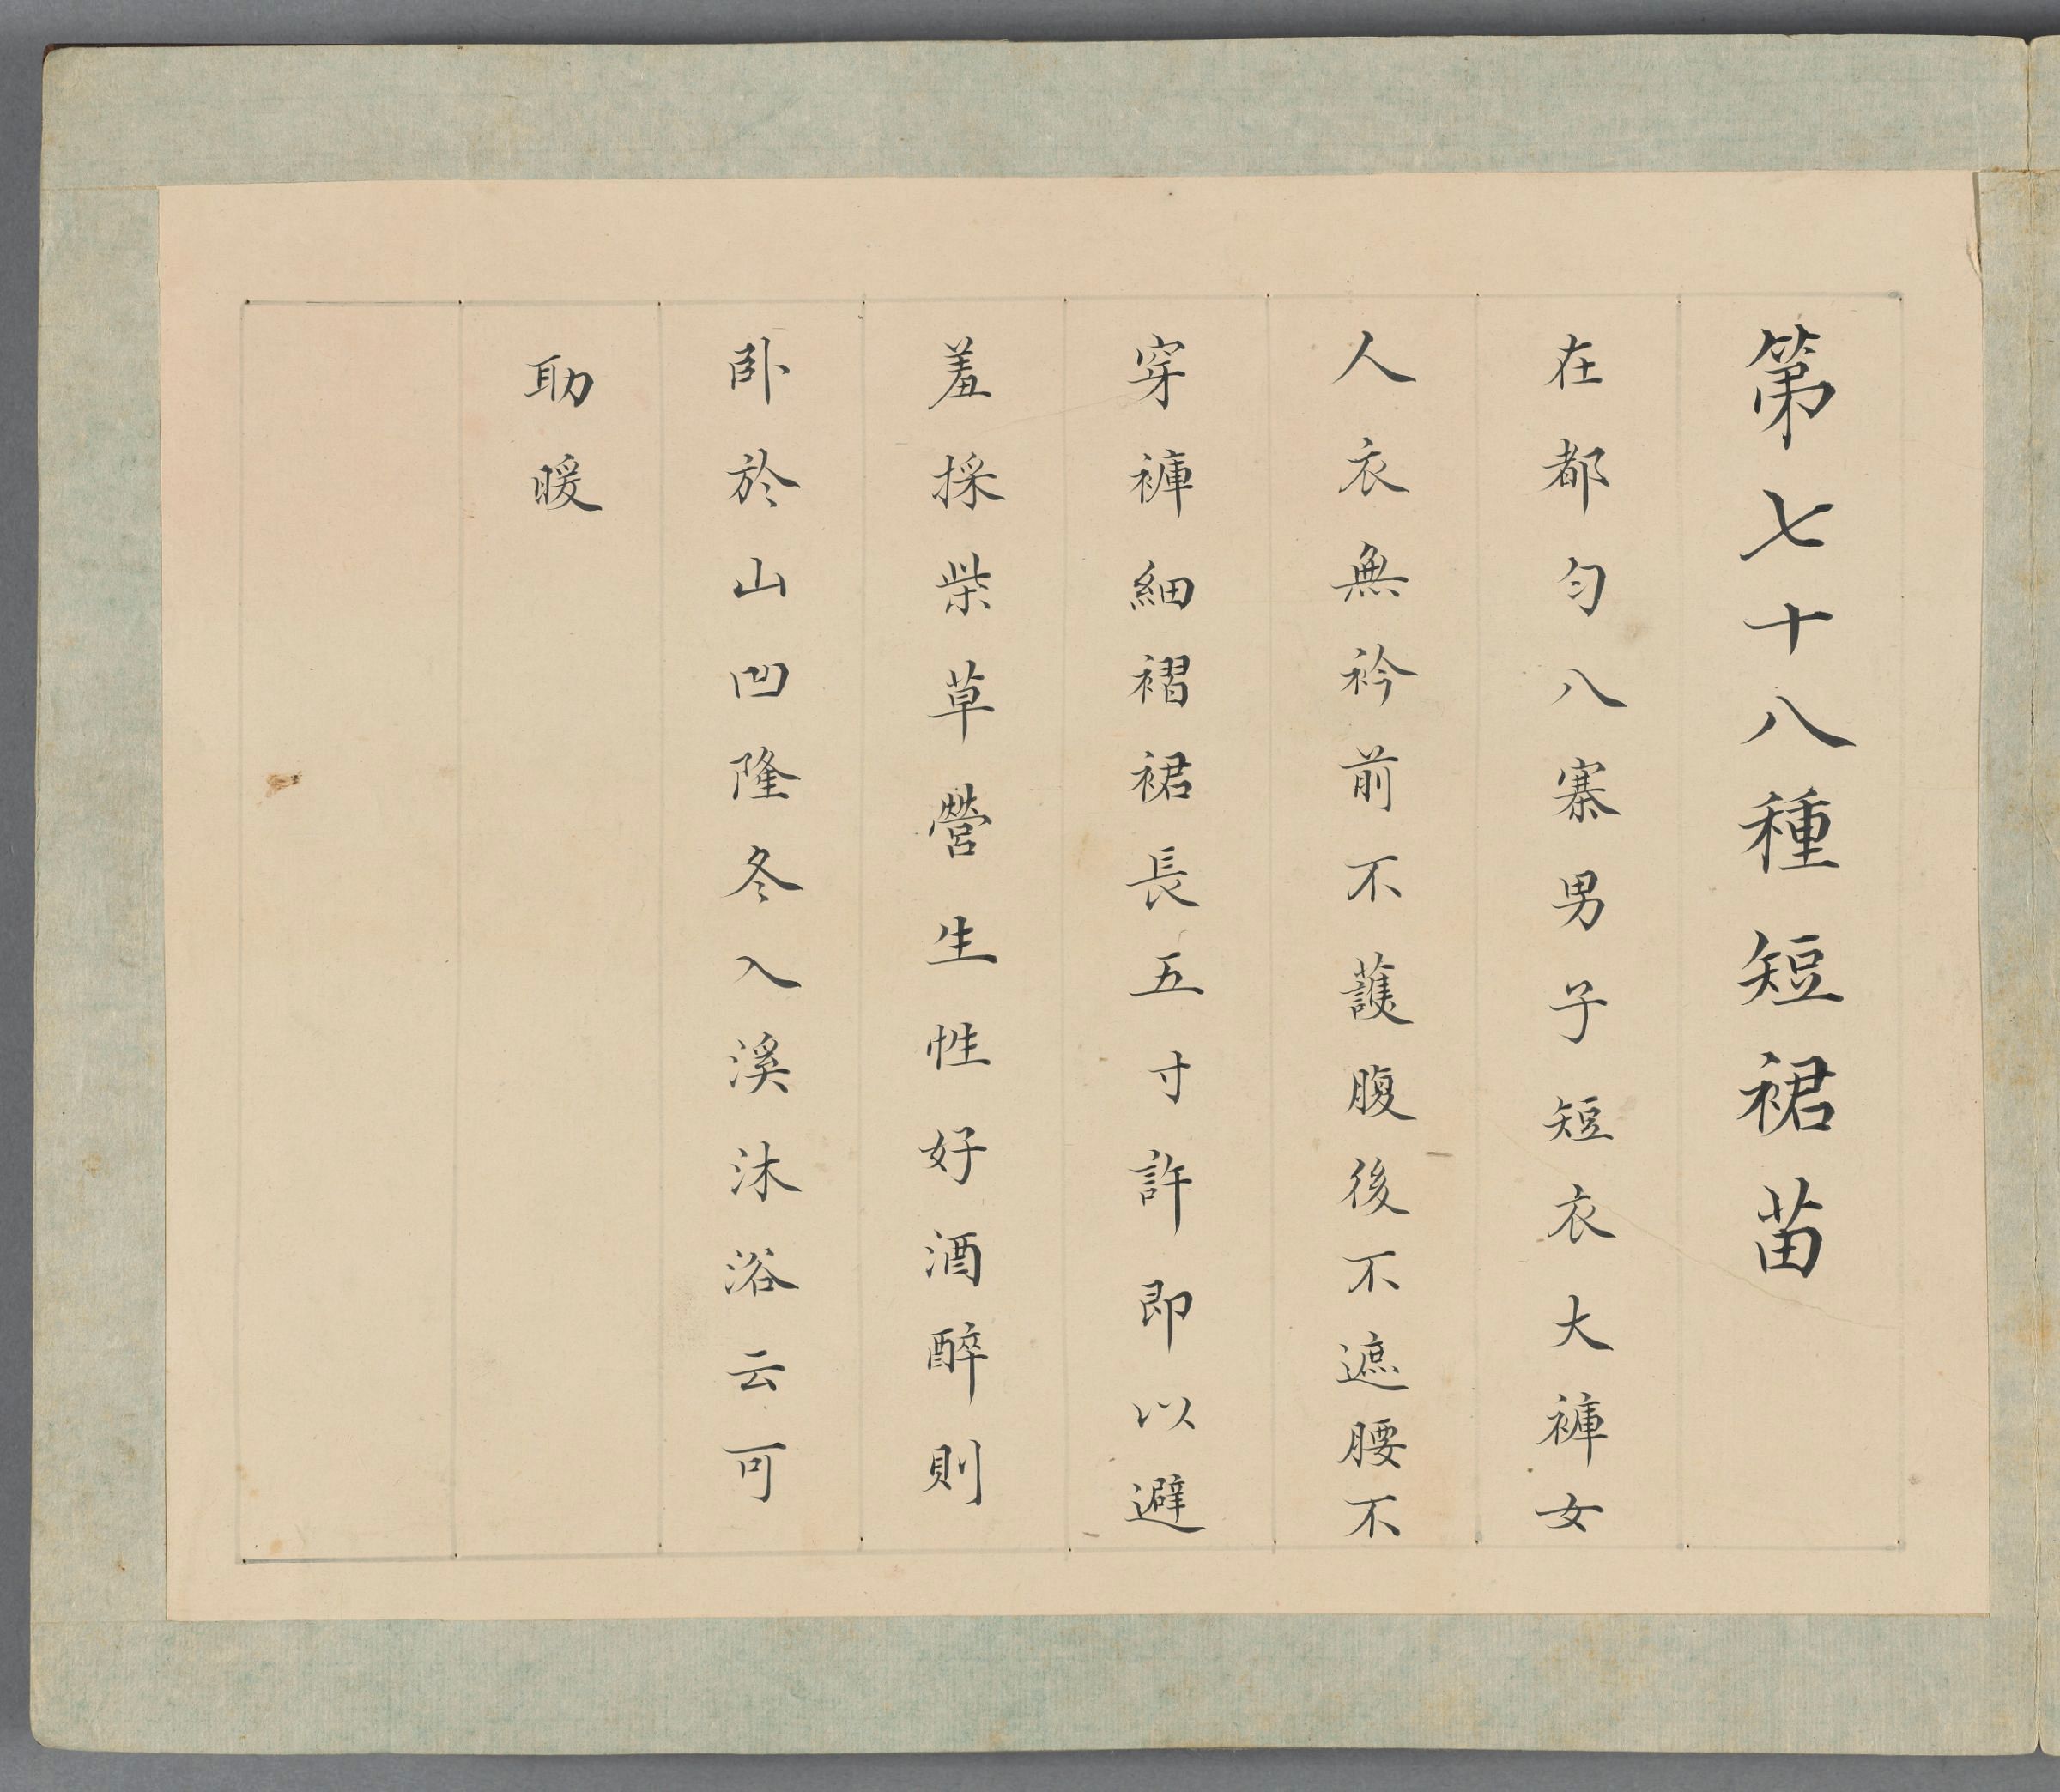 第七十八種短裙苗
在都匀八寨男子短衣大褲女
人衣無衿前不護腹後不遮腰不
穿褲細褶裙長五寸許即以避
羞採柴草營生性好酒醉則
卧於山凹隆冬入溪沐浴云可
助暖